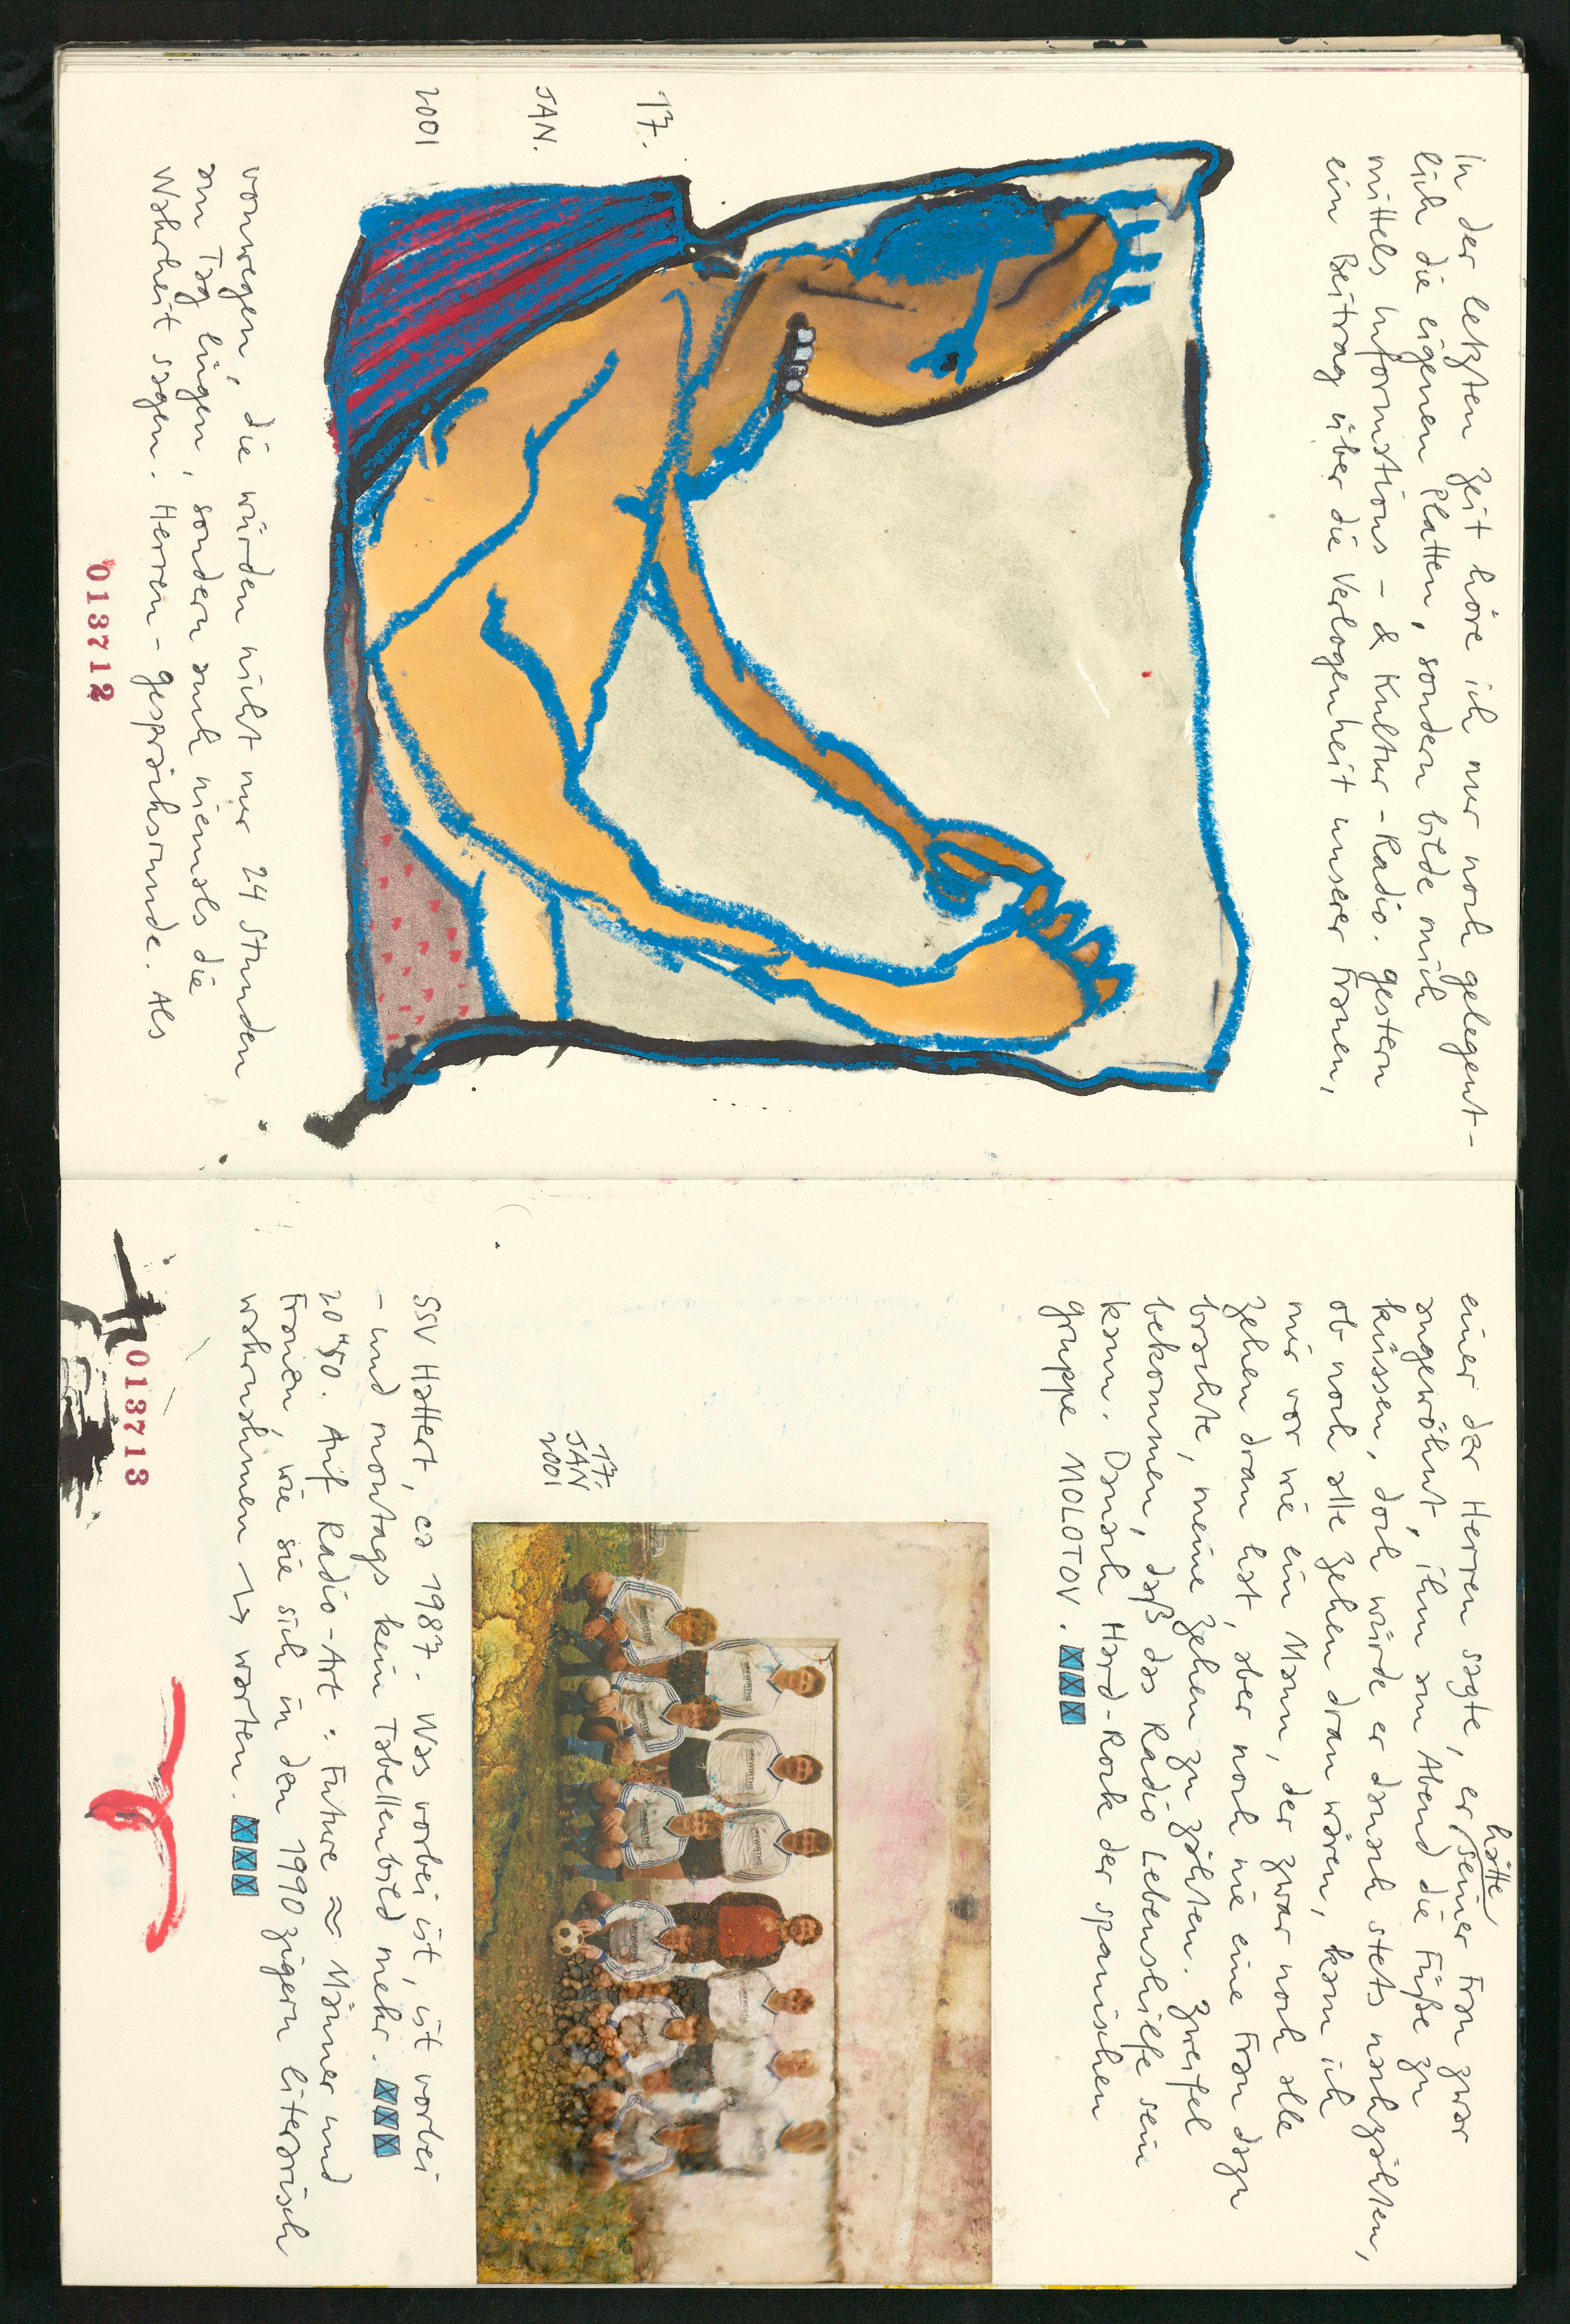 17.
JAN.
2001
In der letzten Zeit höre ich nur noch gelegent-
lich die eigenen Platten, sondern bilde mich
mittels Informations - & Kultur - Radio. gestern
ein Beitrag über die Verlogenheit unserer Frauen,
vonwegen, die würden nicht nur 24 Stunden
am Tag lügen, sondern auch niemals die
Wahrheit sagen. Herren - gesprächsrunde. Als
013712
einer der Herren sagte, er hätte seiner Frau zwar
angewöhnt, ihm am Abend die Füße zu
küssen, doch würde er danach stets nachzählen,
ob noch alle Zehen dran wären, kam ich
mir vor wie ein Mann, der zwar noch alle
Zehen dran hat, aber noch nie eine Frau dazu
brachte, meine Zehen zu zählen. Zweifel
bekommen, daß das Radio Lebenshilfe sein
kann. Danach Hard-Rock der spanischen
gruppe MOLOTOV. XXX
17.
JAN
2001
SSV Hattert, ca 1987. Was vorbei ist, ist vorbei
- und montags kein Tabellenbild mehr. XXX
20 H 50. Auf Radio-Art: Future ≈ Männer und
Frauen, wie sie sich in den 1990zigern literarisch
wahrnahmen ↪ warten. XXX
013713